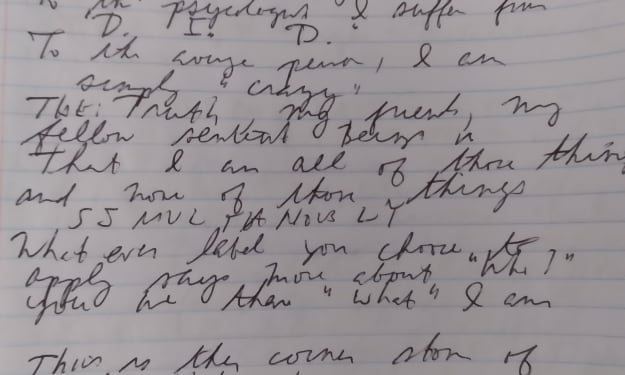 To the psycologist I suffer from
D. I. D.
To the avarge person, I am
simply "crazy"
The: Truth my friends, my
fellow sentient beings is
That I am all of those thing
and none of those things
What ever label you choose to
apply says more about "Who"
you are than "What" I am
This is the corner stone of